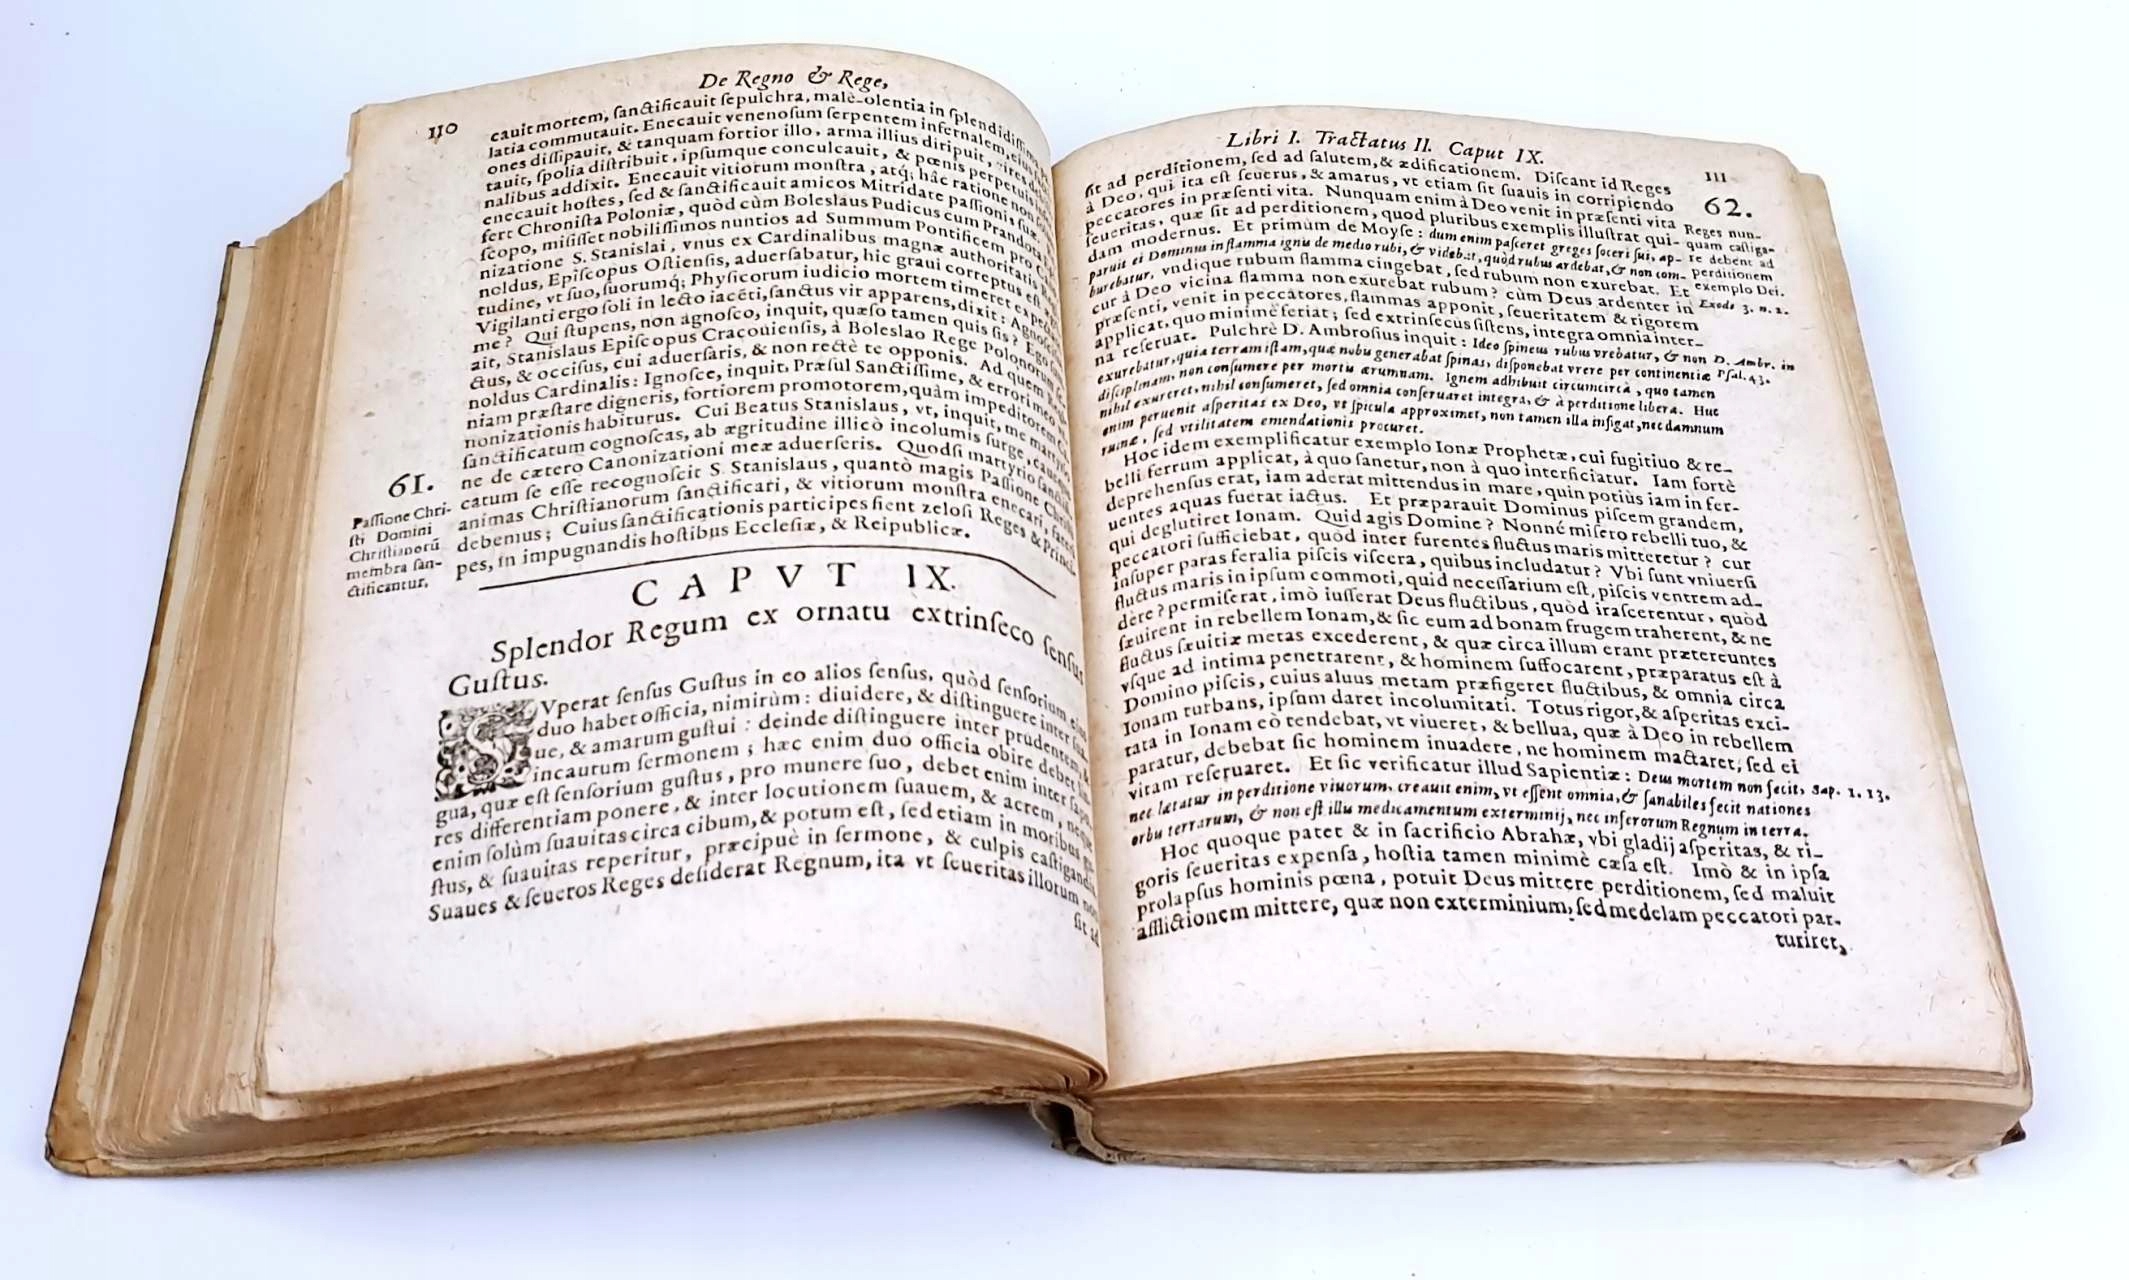 De Regno & Rege,
110
cauit mortem, ſanctificauit ſepulchra, malè-olentia in ſplendidiſſima
latia commutauit. Enecauit venenoſum ſerpentem infernalem,
ones diſſipauit, & tanquam fortior illo, arma illius diripuit,
tauit, ſpolia diſtribuit, ipſumque conculcauit, & pœnis perpetuis
nalibus addixit. Enecauit vitiorum monſtra, atq; hâc ratione non
enecauit hoſtes, ſed & ſanctificauit amicos Mitridate paſſionis ſuæ.
fert Chroniſta Poloniæ, quòd cùm Boleslaus Pudicus cum Prandota
ſcopo, miſiſſet nobiliſſimos nuntios ad Summum Pontificem pro
nizatione S. Stanislai, vnus ex Cardinalibus magnæ authoritatis
noldus, Epiſcopus Oſtienſis, aduerſabatur, hic graui correptus eſt
tudine, vt ſuo, ſuorumq; Phyſicorum iudicio mortem timeret
Vigilanti ergo ſoli in lecto iacẽti, ſanctus vir apparens, dixit:
me? Qui ſtupens, non agnoſco, inquit, quæſo tamen quis ſis? Ego
ait, Stanislaus Epiſcopus Cracouienſis, à Boleslao Rege Polonorum
ctus, & occiſus, cui aduerſaris, & non rectè te opponis. Ad quem
noldus Cardinalis: Ignoſce, inquit, Præſul Sanctiſſime, & errori meo
niam præſtare digneris, fortiorem promotorem, quàm impeditorem
nonizationis habiturus. Cui Beatus Stanislaus, vt, inquit, me martyrio
ſanctificatum cognoſcas, ab ægritudine illicò incolumis ſurge,
ne de cætero Canonizationi meæ aduerſeris. Quodſi martyrio
catum ſe eſſe recognoſcit S. Stanislaus, quantò magis Paſſione Chriſti
animas Chriſtianorum ſanctificari, & vitiorum monſtra enecari,
debemus; Cuius ſanctificationis participes fient zeloſi Reges & Princi-
pes, in impugnandis hoſtibus Eccleſiæ, & Reipublicæ.
61.
Paſſione Chri-
ſti Domini
Chriſtianorũ
membra ſan-
ctificantur.
CAPVT IX.
Splendor Regum ex ornatu extrinſeco ſenſus
Guſtus.
SVperat ſenſus Guſtus in eo alios ſenſus, quòd ſenſorium eius
duo habet officia, nimirùm: diuidere, & diſtinguere inter ſua-
ue, & amarum guſtui: deinde diſtinguere inter prudentem, &
incautum ſermonem; hæc enim duo officia obire debet lin-
gua, quæ eſt ſenſorium guſtus, pro munere ſuo, debet enim inter ſapo-
res differentiam ponere, & inter locutionem ſuauem, & acrem, neque
enim ſolùm ſuauitas circa cibum, & potum eſt, ſed etiam in moribus gu-
ſtus, & ſuauitas reperitur, præcipuè in ſermone, & culpis caſtigandis.
Suaues & ſeueros Reges deſiderat Regnum, ita vt ſeueritas illorum non
ſit ad
Libri I. Tractatus II. Caput IX.
111
ſit ad perditionem, ſed ad ſalutem, & ædificationem. Diſcant id Reges
à Deo, qui ita eſt ſeuerus, & amarus, vt etiam ſit ſuauis in corripiendo
peccatores in præſenti vita. Nunquam enim à Deo venit in præſenti vita
ſeueritas, quæ ſit ad perditionem, quod pluribus exemplis illuſtrat qui-
dam modernus. Et primùm de Moyſe: dum enim paſceret greges ſoceri ſui, ap-
paruit ei Dominus in flamma ignis de medio rubi, & videbat, quòd rubus ardebat, & non com-
burebatur, vndique rubum flamma cingebat, ſed rubum non exurebat. Et
cur à Deo vicina flamma non exurebat rubum? cùm Deus ardenter in
præſenti, venit in peccatores, flammas apponit, ſeueritatem & rigorem
applicat, quo minimè feriat; ſed extrinſecùs ſiſtens, integra omnia inter-
na reſeruat. Pulchrè D. Ambroſius inquit: Ideo ſpineus rubus vrebatur, & non
exurebatur, quia terram iſtam, quæ nobis generabat ſpinas, diſponebat vrere per continentiæ
diſciplinam, non conſumere per mortis ærumnam. Ignem adhibuit circumcircà, quo tamen
nihil exureret, nihil conſumeret, ſed omnia conſeruaret integra, & à perditione libera. Huc
enim peruenit aſperitas ex Deo, vt ſpicula approximet, non tamen illa infigat, nec damnum
ruinæ, ſed vtilitatem emendationis procuret.
Hoc idem exemplificatur exemplo Ionæ Prophetæ, cui fugitiuo & re-
belli ferrum applicat, à quo ſanetur, non à quo interficiatur. Iam fortè
deprehenſus erat, iam aderat mittendus in mare, quin potiùs iam in fer-
uentes aquas fuerat iactus. Et præparauit Dominus piſcem grandem,
qui deglutiret Ionam. Quid agis Domine? Nonné miſero rebelli tuo, &
peccatori ſufficiebat, quòd inter furentes fluctus maris mitteretur? cur
inſuper paras feralia piſcis viſcera, quibus includatur? Vbi ſunt vniuerſi
fluctus maris in ipſum commoti, quid neceſſarium eſt, piſcis ventrem ad-
dere? permiſerat, imò iuſſerat Deus fluctibus, quòd iraſcerentur, quòd
ſæuirent in rebellem Ionam, & ſic eum ad bonam frugem traherent, & ne
fluctus ſæuitiæ metas excederent, & quæ circa illum erant prætereuntes
vſque ad intima penetrarent, & hominem ſuffocarent, præparatus eſt à
Domino piſcis, cuius aluus metam præfigeret fluctibus, & omnia circa
Ionam turbans, ipſam daret incolumitati. Totus rigor, & aſperitas exci-
tata in Ionam eò tendebat, vt viueret, & bellua, quæ à Deo in rebellem
paratur, debebat ſic hominem inuadere, ne hominem mactaret, ſed ei
vitam reſeruaret. Et ſic verificatur illud Sapientiæ: Deus mortem non fecit,
nec lætatur in perditione viuorum, creauit enim, vt eſſent omnia, & ſanabiles fecit nationes
orbis terrarum, & non eſt illis medicamentum exterminij, nec inferorum Regnum in terra.
Hoc quoque patet & in ſacrificio Abrahæ, vbi gladij aſperitas, & ri-
goris ſeueritas expenſa, hoſtia tamen minimè cæſa eſt. Imò & in ipſa
prolapſus hominis pœna, potuit Deus mittere perditionem, ſed maluit
afflictionem mittere, quæ non exterminium, ſed medelam peccatori par-
turiret,
62.
Reges nun-
quam caſtiga-
re debent ad
perditionem
exemplo Dei.
Exod. 3. n. 2.
D. Ambr. in
Pſal. 43.
Sap. 1. 13.